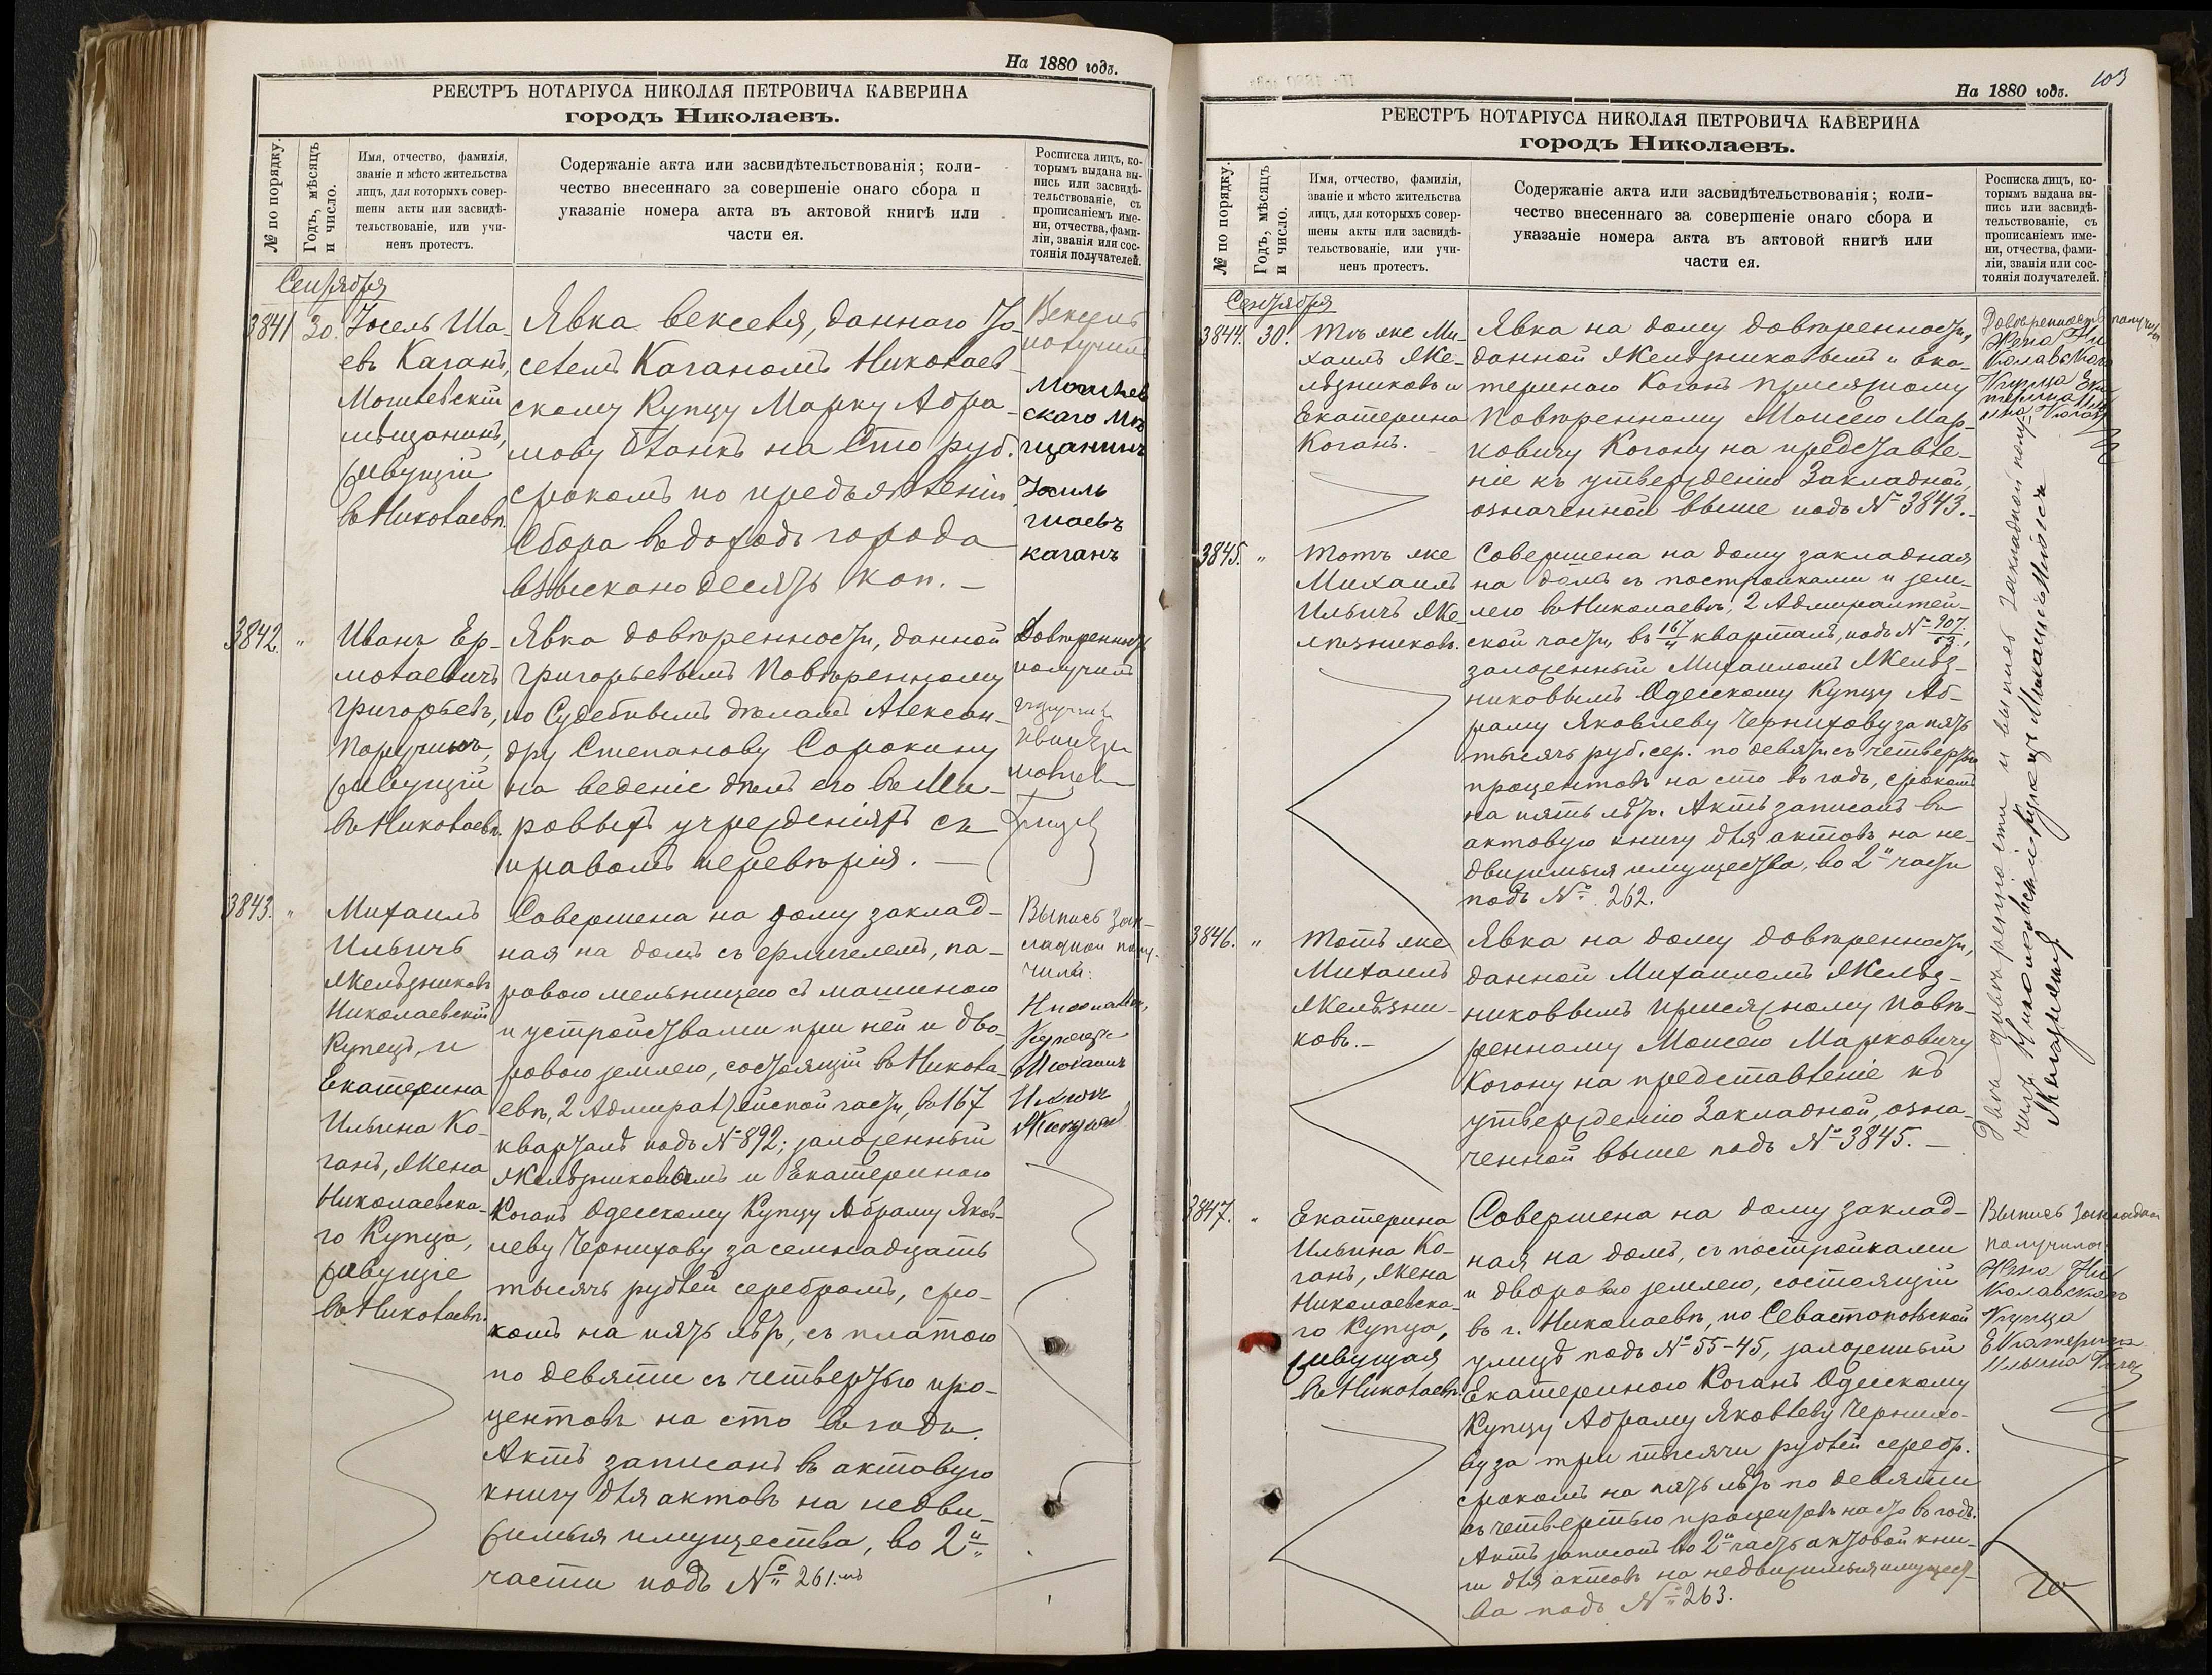 На 1880 годъ.
РЕЕСТРЪ НОТАРІУСА НИКОЛАЯ ПЕТРОВИЧА КАВЕРИНА
городъ Николаевъ.
№ по порядку.
Годъ, мѣсяцъ
и число.
Имя, отчество, фамилія,
званіе и мѣсто жительства
лицъ, для которыхъ совер-
шены акты или засвидѣ-
тельствованіе, или учи-
ненъ протестъ.
Содержаніе акта или засвидѣтельствованія; коли-
чество внесеннаго за совершеніе онаго сбора и
указаніе номера акта въ актовой книгѣ или
части ея.
Росписка лицъ, ко-
торымъ выдана вы-
пись или засвидѣ-
тельствованіе, съ
прописаніемъ име-
ни, отчества, фами-
ліи, званія или сос-
тоянія получателей.
Сентября
3841 30.
Іосель Ша-
евъ Каганъ,
Могилевскій
мѣщанинъ,
живущій
въ Николаевѣ.
Явка векселя, даннаго Іо-
селемъ Каганомъ Николаев-
скому Купцу Марку Абра-
мову Бланкъ на Сто руб.
срокомъ по предъявленіи.
Сбора въ доходъ города
взыскано десять коп. —
Вексель
получилъ
Могилев
скаго мѣ
щанинъ
Іосиль
шаевъ
каганъ
3842. "
Иванъ Ер-
молаевичъ
Григорьевъ,
Поручикъ,
живущій
въ Николаевѣ.
Явка довѣренности, данной
Григорьевымъ Повѣренному
по Судебнымъ дѣламъ Алексан-
дру Степанову Сорокину
на веденіе дѣлъ его въ Ми-
ровыхъ учрежденіяхъ съ
правомъ передовѣрія. —
Довѣренность
получилъ
3843. "
Михаилъ
Ильичъ
Желѣзниковъ
Николаевскій
Купецъ, и
Екатерина
Ильина Ко-
ганъ, Жена
Николаевска-
го Купца,
живущіе
въ Николаевѣ.
Совершена на дому заклад-
ная на домъ съ флигелемъ, па-
ровою мельницею съ машиною
и устройствами при ней и дво-
ровою землею, состоящій въ Никола-
евѣ, 2 Адмиралтейской части, въ 167
кварталѣ подъ № 892; заложенный
Желѣзниковымъ и Екатериною
Коганъ Одесскому Купцу Абраму Яков-
леву Чернихову за семнадцать
тысячъ рублей серебромъ, сро-
комъ на пять лѣтъ, съ платою
по девяти съ четвертью про-
центовъ на сто въ годъ.
Актъ записанъ въ актовую
книгу для актовъ на недви-
жимыя имущества, во 2й
части подъ № 261.мъ
Выпись зак-
ладной полу-
чили:
Николаевск.
Купецъ
Михаилъ
Ильичъ
На 1880 годъ.
103
РЕЕСТРЪ НОТАРІУСА НИКОЛАЯ ПЕТРОВИЧА КАВЕРИНА
городъ Николаевъ.
№ по порядку.
Годъ, мѣсяцъ
и число.
Имя, отчество, фамилія,
званіе и мѣсто жительства
лицъ, для которыхъ совер-
шены акты или засвидѣ-
тельствованіе, или учи-
ненъ протестъ.
Содержаніе акта или засвидѣтельствованія; коли-
чество внесеннаго за совершеніе онаго сбора и
указаніе номера акта въ актовой книгѣ или
части ея.
Росписка лицъ, ко-
торымъ выдана вы-
пись или засвидѣ-
тельствованіе, съ
прописаніемъ име-
ни, отчества, фами-
ліи, званія или сос-
тоянія получателей.
Сентября
3844. 30.
Тѣ же Ми-
хаилъ Же-
лѣзниковъ и
Екатерина
Коганъ.
Явка на дому довѣренности,
данной Желѣзниковымъ и Ека-
териною Коганъ присяжному
Повѣренному Моисею Мар-
ковичу Когану на представле-
ніе къ утвержденію Закладной,
означенной выше подъ № 3843.
Довѣренность получила
Жена Ни
колавскаго
Купца Ека
терина
3845. "
Тотъ же
Михаилъ
Ильичъ Же-
лѣзниковъ.
Совершена на дому закладная
на домъ съ постройками и зем-
лею въ Николаевѣ, 2 Адмиралтей-
ской части, въ 167/4 кварталѣ, подъ № 907/53,
заложенный Михаиломъ Желѣз-
никовымъ Одесскому Купцу Аб-
раму Яковлеву Чернихову за пять
тысячъ руб. сер. по девяти съ четвертью
процентовъ на сто въ годъ, срокомъ
на пять лѣтъ. Актъ записанъ въ
актовую книгу для актовъ на не-
движимыя имущества, во 2й части
подъ № 262.
3846. "
Тотъ же
Михаилъ
Желѣзни-
ковъ. —
Явка на дому довѣренности,
данной Михаиломъ Желѣз-
никовымъ присяжному повѣ-
ренному Моисею Марковичу
Когану на представленіе къ
утвержденію Закладной, озна-
ченной выше подъ № 3845. —
закладной полу-
чилъ Николаевский купецъ Михаилъ
3847. "
Екатерина
Ильина Ко-
ганъ, Жена
Николаевска-
го Купца,
живущая
въ Николаевѣ.
Совершена на дому заклад-
ная на домъ, съ постройками
и дворовою землею, состоящій
въ г. Николаевѣ, по Севастопольской
улицѣ подъ № 55-45, заложенный
Екатериною Коганъ Одесскому
Купцу Абраму Яковлеву Чернихо-
ву за три тысячи рублей серебр.
срокомъ на пять лѣтъ по девяти
съ четвертью процентовъ на сто въ годъ.
Актъ записанъ во 2й часть актовой кни-
ги для актовъ на недвижимыя имущест-
ва подъ № 263.
Выпись закладной
получила
Жена Ни
колавскаго
Купца
Екатерина
Ильина